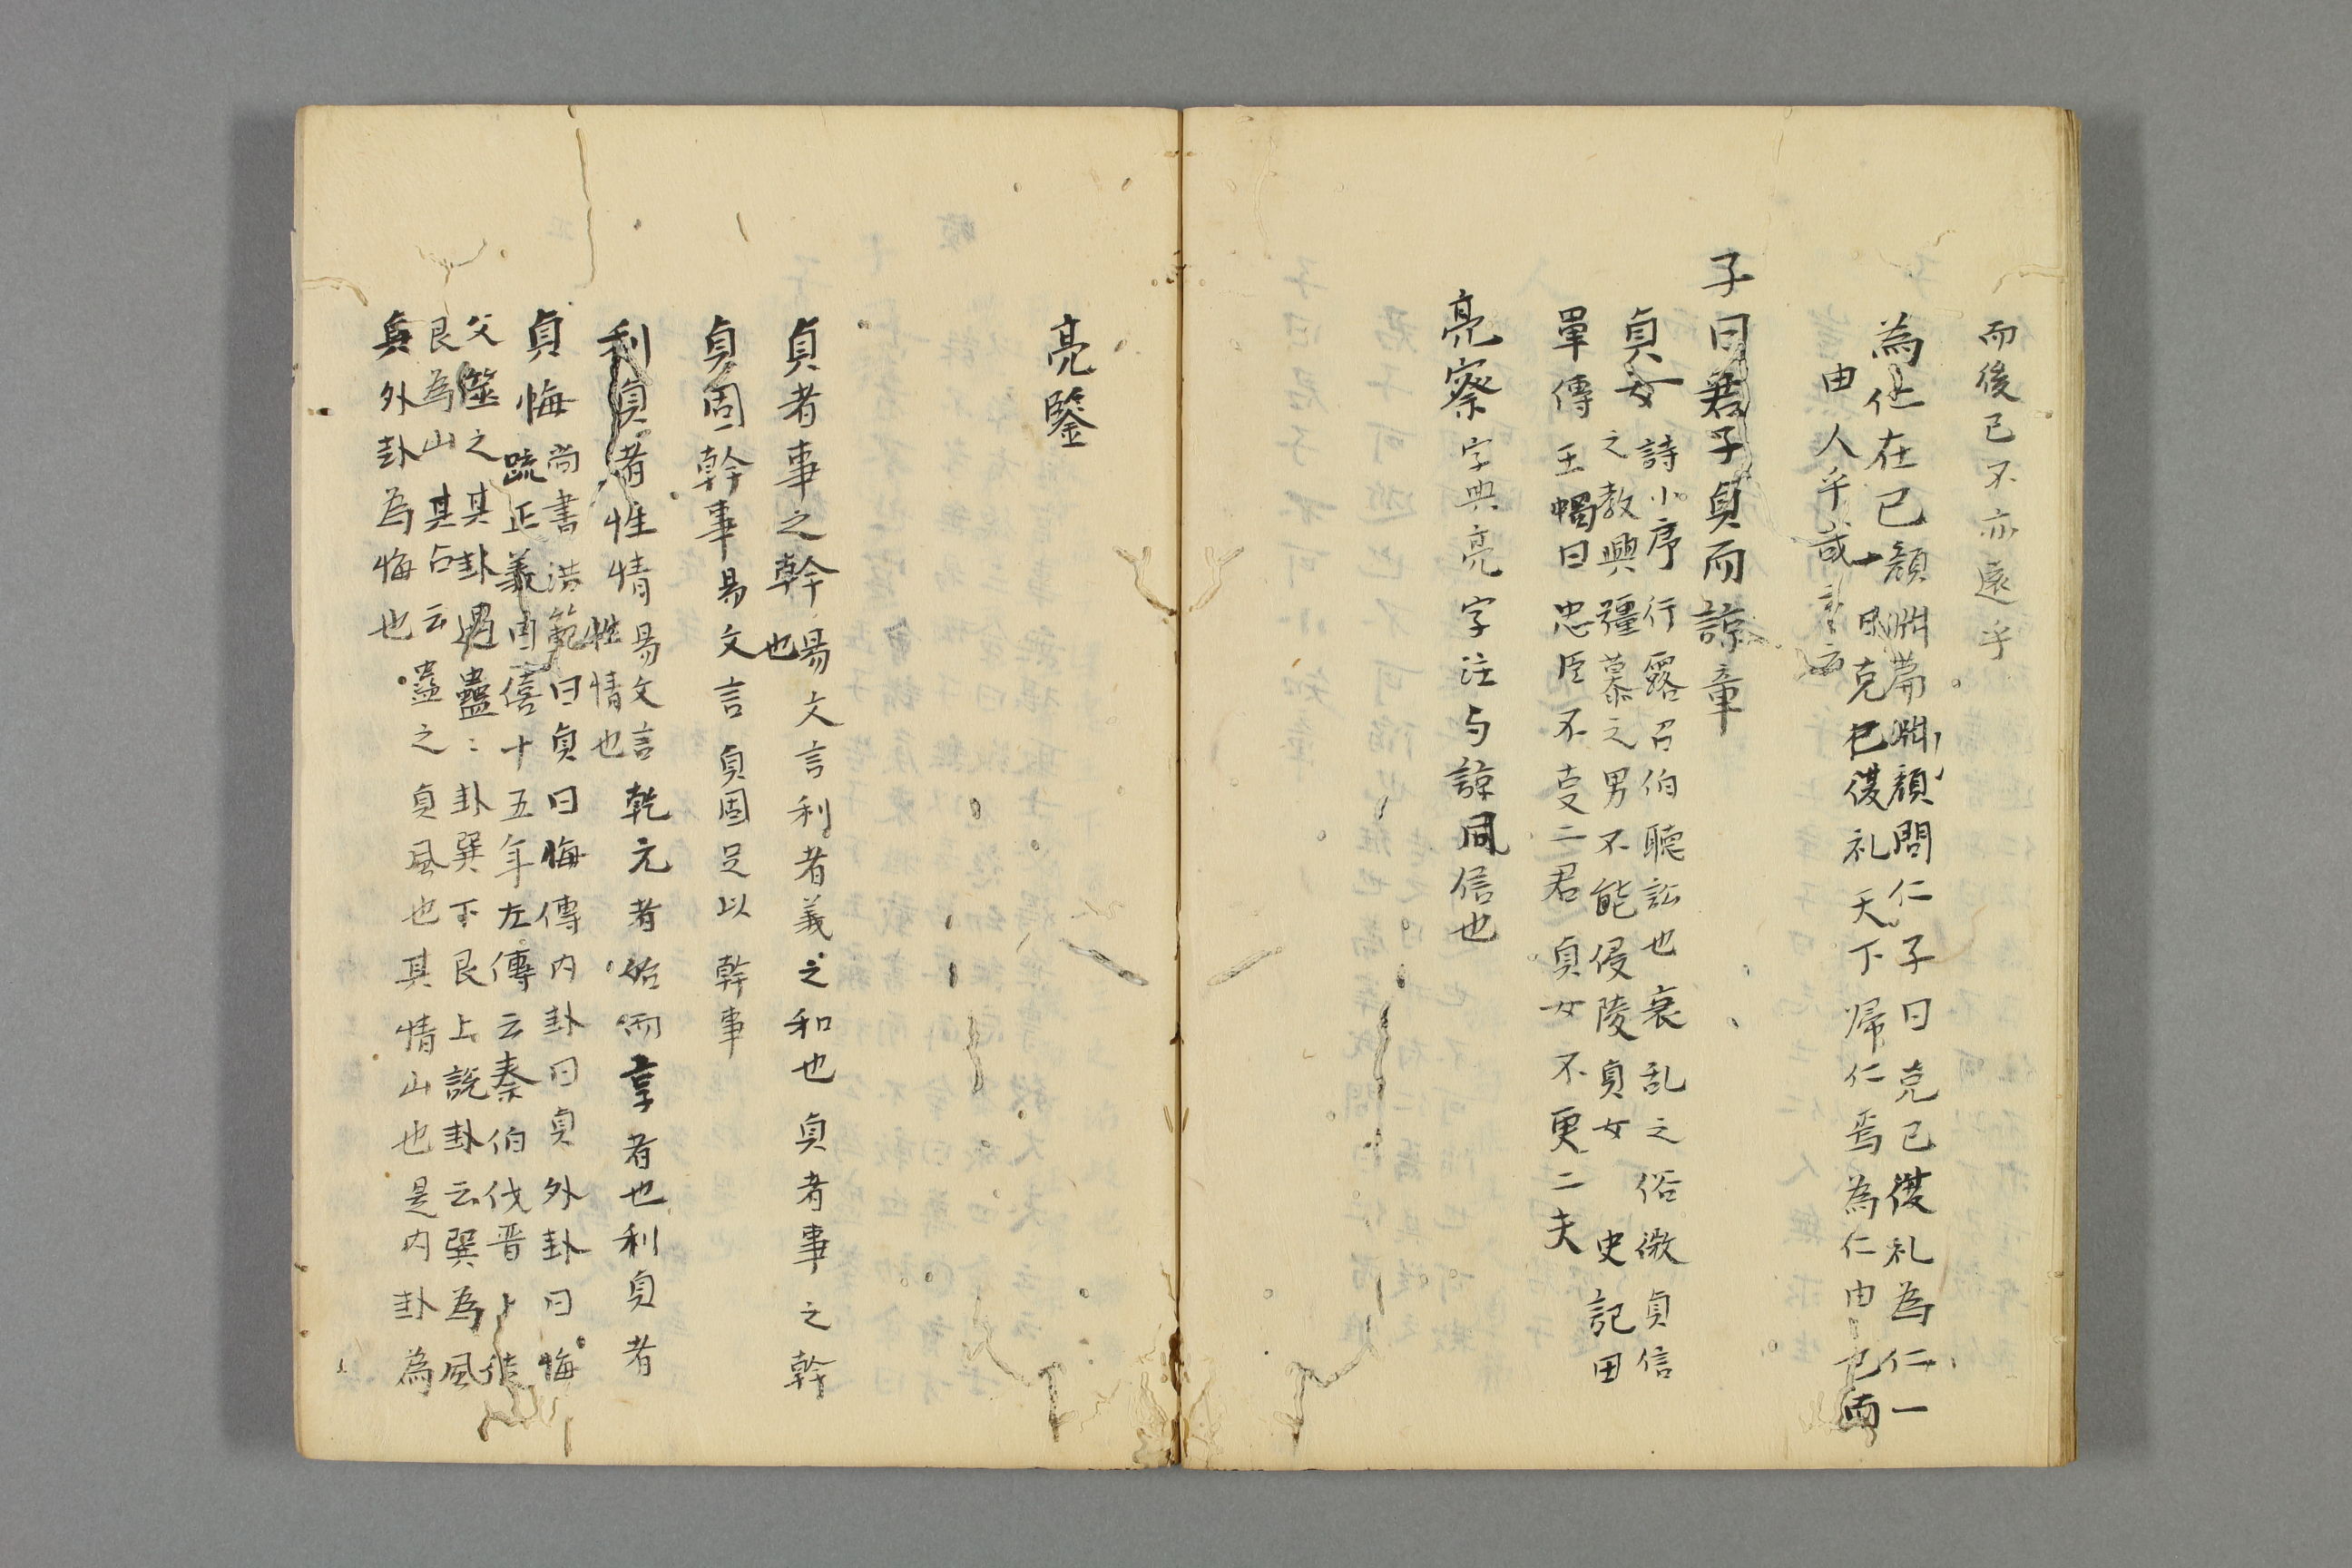 而後已不亦遠乎
為仁在已顔淵篇淵顔問仁子曰克己復礼為仁一
日克己復礼天下帰仁焉為仁由己而
由人乎哉
子曰君子貞而諒章
貞女詩小序行露召伯聴訟也衰乱之俗微貞信
之教興彊暴之男不能侵陵貞女 史記田
単傳王蠋曰忠臣不支二君貞女不更二夫
亮察字典亮字注与諒同信也
亮鑒
貞者事之幹易文言利者義之和也貞者事之幹
也
貞固幹事易文言貞固足以幹事
利貞者性情易文言乾元者始而享者也利貞者
性情也
貞悔尚書洪範曰貞曰悔傳内卦曰貞外卦曰悔
疏正義周僖十五年左傳云秦伯伐晋卜徒
父筮之其卦遇蠱〻卦巽下艮上説卦云巽為風
艮為山其占云蠱之貞風也其情山也是内卦為
貞外卦為悔也